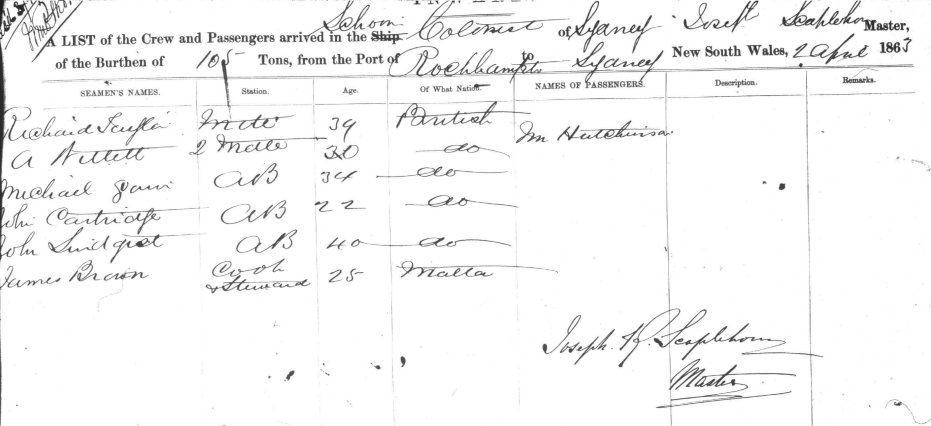 Schoon Colonist Sydney Josh Scaplehorn
A LIST of the Crew and Passengers arrived in the Ship of Master,
of the Burthen of 105 Tons, from the Port of Rockhampton to Sydney New South Wales, 2 April 1863
SEAMEN'S NAMES. Station. Age. Of What Nation. NAMES OF PASSENGERS. Description. Remarks.
Richard Mate 39 British Mr Hutchinson
A 2 Mate 30 do
Michael AB 34 do
John Cartridge AB 22 do
John Lindqist AB 40 do
James Brown Cook 25 Malta
& Steward
Joseph R. Scaplehorn
Master